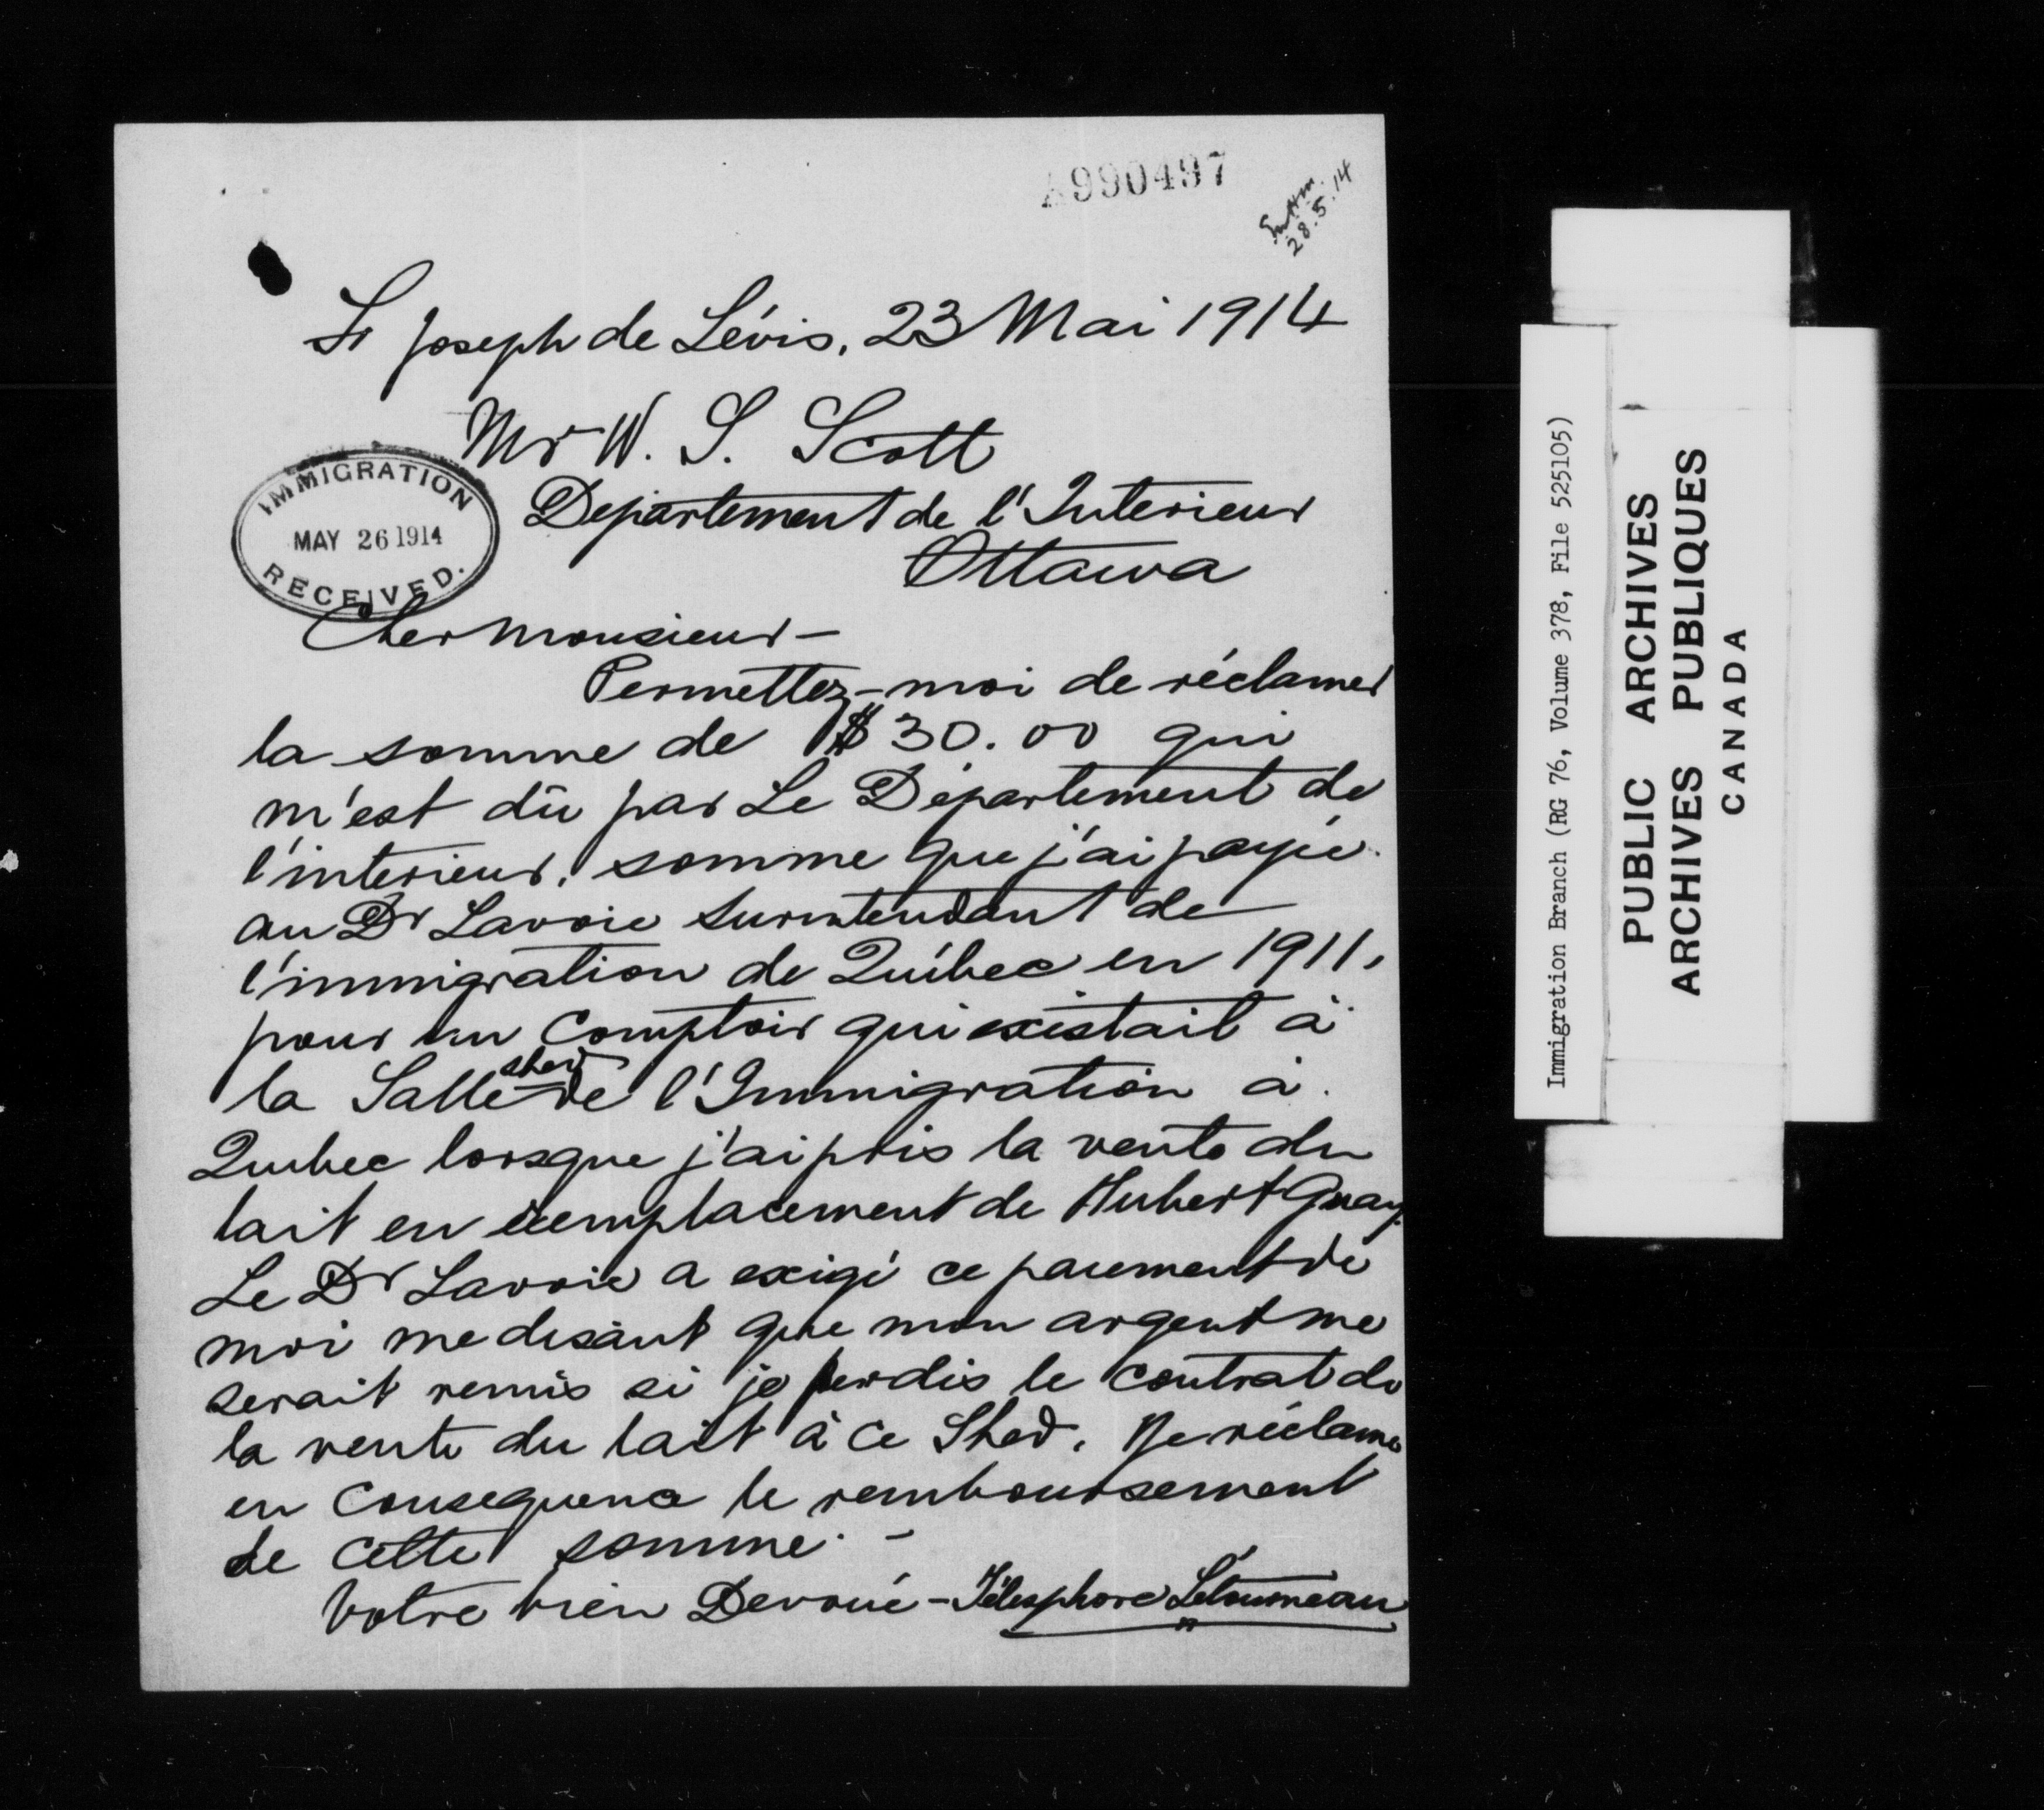 A990497
28.5.14
St Joseph de Lévis, 23 Mai 1914
Mr W. S. Scott
Departement de l'Interieur
Ottawa
IMMIGRATION
MAY 26 1914
RECEIVED.
Cher Monsieur —
Permettez-moi de réclamer
la somme de $30.00 qui
m'est dû par Le Département de
l'interieur, somme que j'ai payée
au Dr Lavoie surintendant de
l'immigration de Québec en 1911,
pour un comptoir qui existait à
la Salle shed de l'Immigration à
Quebec lorsque j'ai pris la vente du
lait en remplacement de Hubert Guay.
Le Dr Lavoie a exigé ce paiement de
moi me disant que mon argent me
serait remis si je perdis le contrat de
la vente du lait à ce Shed. Je réclame
en consequence le remboursement
de cette somme. —
Votre bien Devoué - Télesphore Létourneau
Immigration Branch (RG 76, Volume 378, File 525105)
PUBLIC ARCHIVES
ARCHIVES PUBLIQUES
CANADA